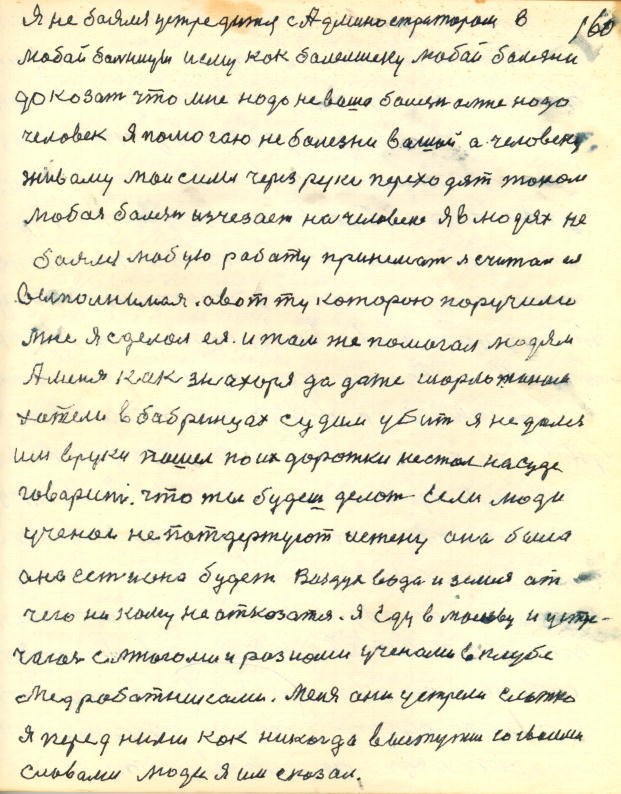 Я не боялся устредится с Администратором в 160
любой больницы и ему как болельшеку любой болезни
доказат что мне надо не ваша болезн а мне надо
человек Я помогаю не болезни вашой а человеку
живому мои силы через руки переходят током
любая болезн изчезает на человеке Я в людях не
боялся любую работу принемат я считал ея
выполнимая. а вот ту которою поручили
мне я сделал ея. и там же помогал людям
А меня как знахоря да даже шорлотаном
хотели в бабринцах судом убит я не дался
им в руки пошел по их дорожки не стал на суде
говарит. что ты будеш делот Если люди
ученои не потдержуют истену она была
она Ест и она будет Воздух вода и земля от
чего ни кому не отказатся. Я Еду в москву и устре-
чаюя с многоми и разноми учеными в клубе
Медработниками. Меня они устрели
Я перед ними как никогда выступил со своими
словами люди Я им сказал.